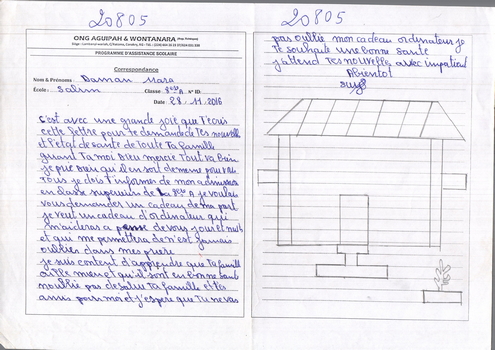 20805
ONG AGUIPAH & WONTANARA
PROGRAMME D'ASSISTANCE SCOLAIRE
Correspondance
Nom & Prénoms : Daman Mara
École : Salim Classe 8ème A N° ID.
Date : 28.11.2016
C'est avec une grande joie que T'ecris
cette lettre pour te demande de Tes nouvelle
et l'etat de sante de Toute Ta famille
quant Ta moi Dieu mercie Tout va bien
je prie Dieu qu'il en soit de meme pour vous
Tous je dois t'informes de mon admission
en classe superieur de La 8ème A je voulais
vous demander un cadeau de ma part
je veut un cadeau d'ordinateur qui
m'aideras a pense de vous jour et nuit
et qui me permettra de n'est jamais
oublier dans mes priere
je suis content d'apprendre que Ta famille
aille mieux et qu'il sont en bonne sante
n'oublie pas de salue Ta famille et tes
amis pour moi et j'espere que Tu ne vas
20805
pas oublie mon cadeau ordinateur je
Te souhaite une bonne sante
j'attend Tes nouvelle avec impatient
Abientot